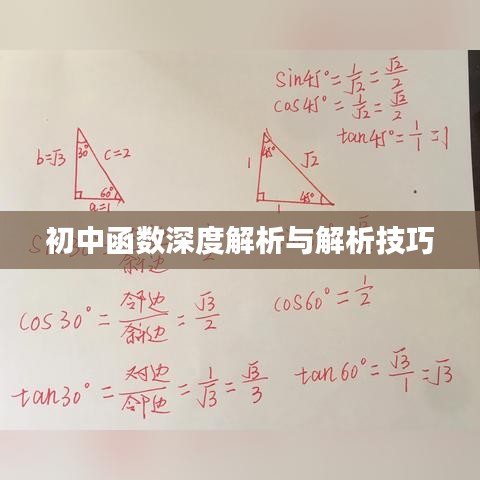 sin45°=1/√2=√2/2
cos45°=1/√2=√2/2
tan45°=1/1=1
b=√3 30° c=2
60°
a=1
45° √2
1
45°
1
初中函数深度解析与解析技巧
cos30°=邻边/斜边=√3/2
cos60°=1/2
tan30°=对边/邻边=1/√3=√3/3
tan60°=√3/1=√3